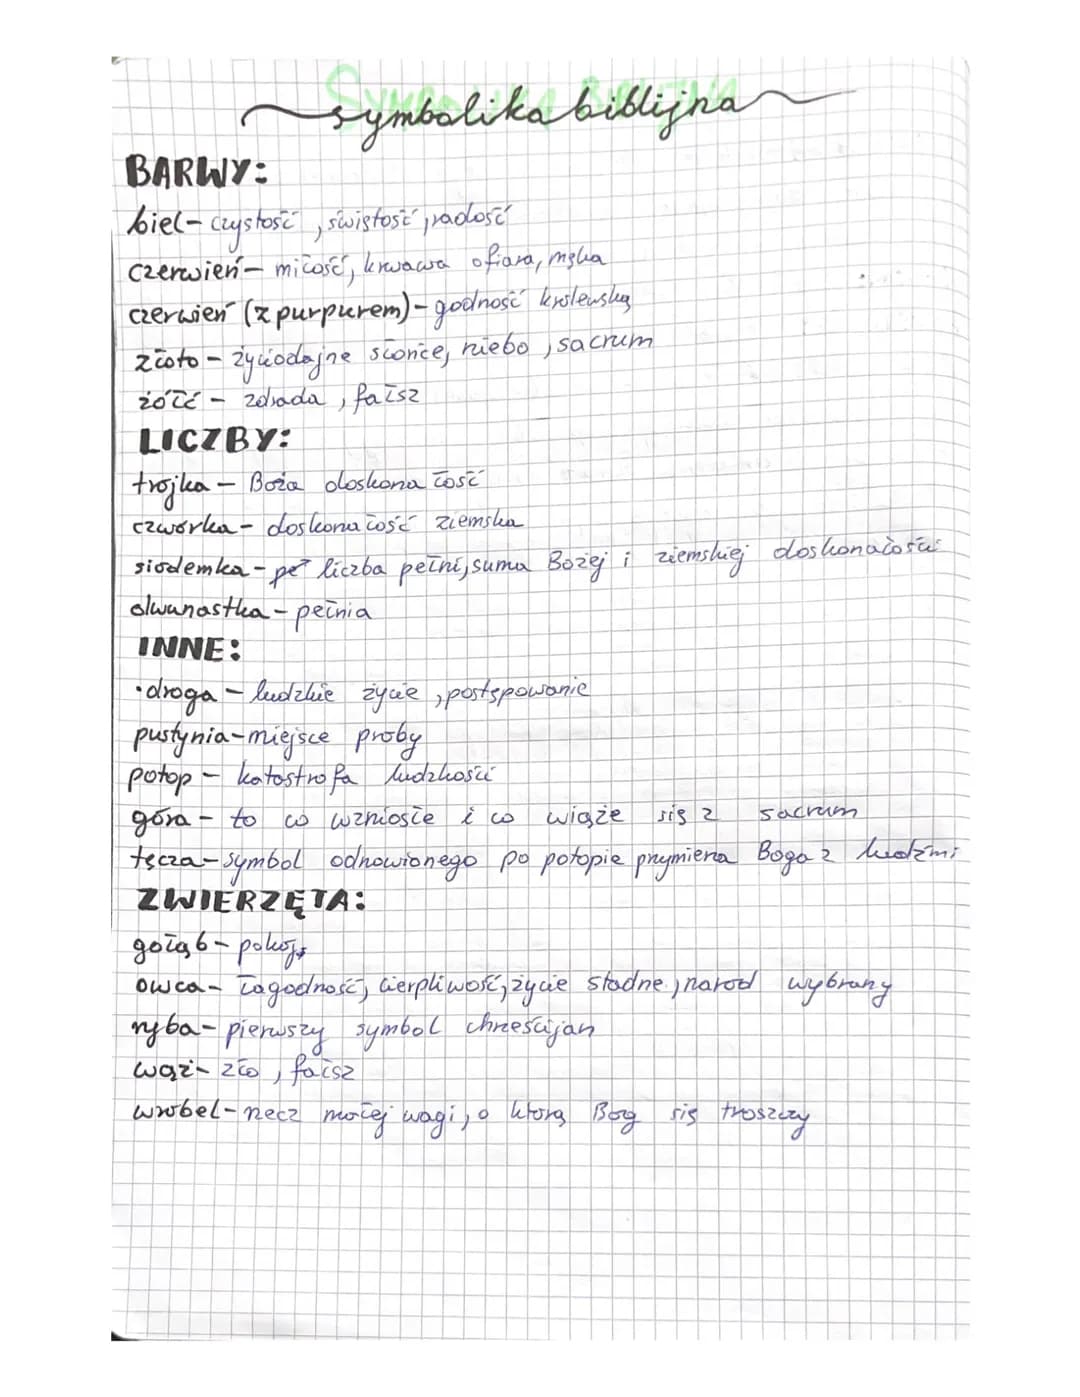 symbolika biblijna
BARWY:
biel- czystość, świętość, radość
czerwień- miłość, krwawa ofiara, męka
czerwień (z purpurem)- godność królewską
złoto- życiodajne słońce, niebo, sacrum
żółć- zdrada, fałsz
LICZBY:
trójka- Boża doskonałość
czwórka- doskonałość ziemska
siódemka- peł liczba pełni, suma Bożej i ziemskiej doskonałości
dwunastka- pełnia
INNE:
·droga- ludzkie życie, postępowanie
pustynia- miejsce próby
potop- katastrofa ludzkości
góra- to co wzniosłe i co wiąże się z sacrum
tęcza- symbol odnowionego po potopie przymierza Boga z ludźmi
ZWIERZĘTA:
gołąb- pokój
owca- łagodność, cierpliwość, życie stadne, naród wybrany
ryba- pierwszy symbol chrześcijan
wąż- zło, fałsz
wróbel- rzecz małej wagi, o którą Bóg się troszczy